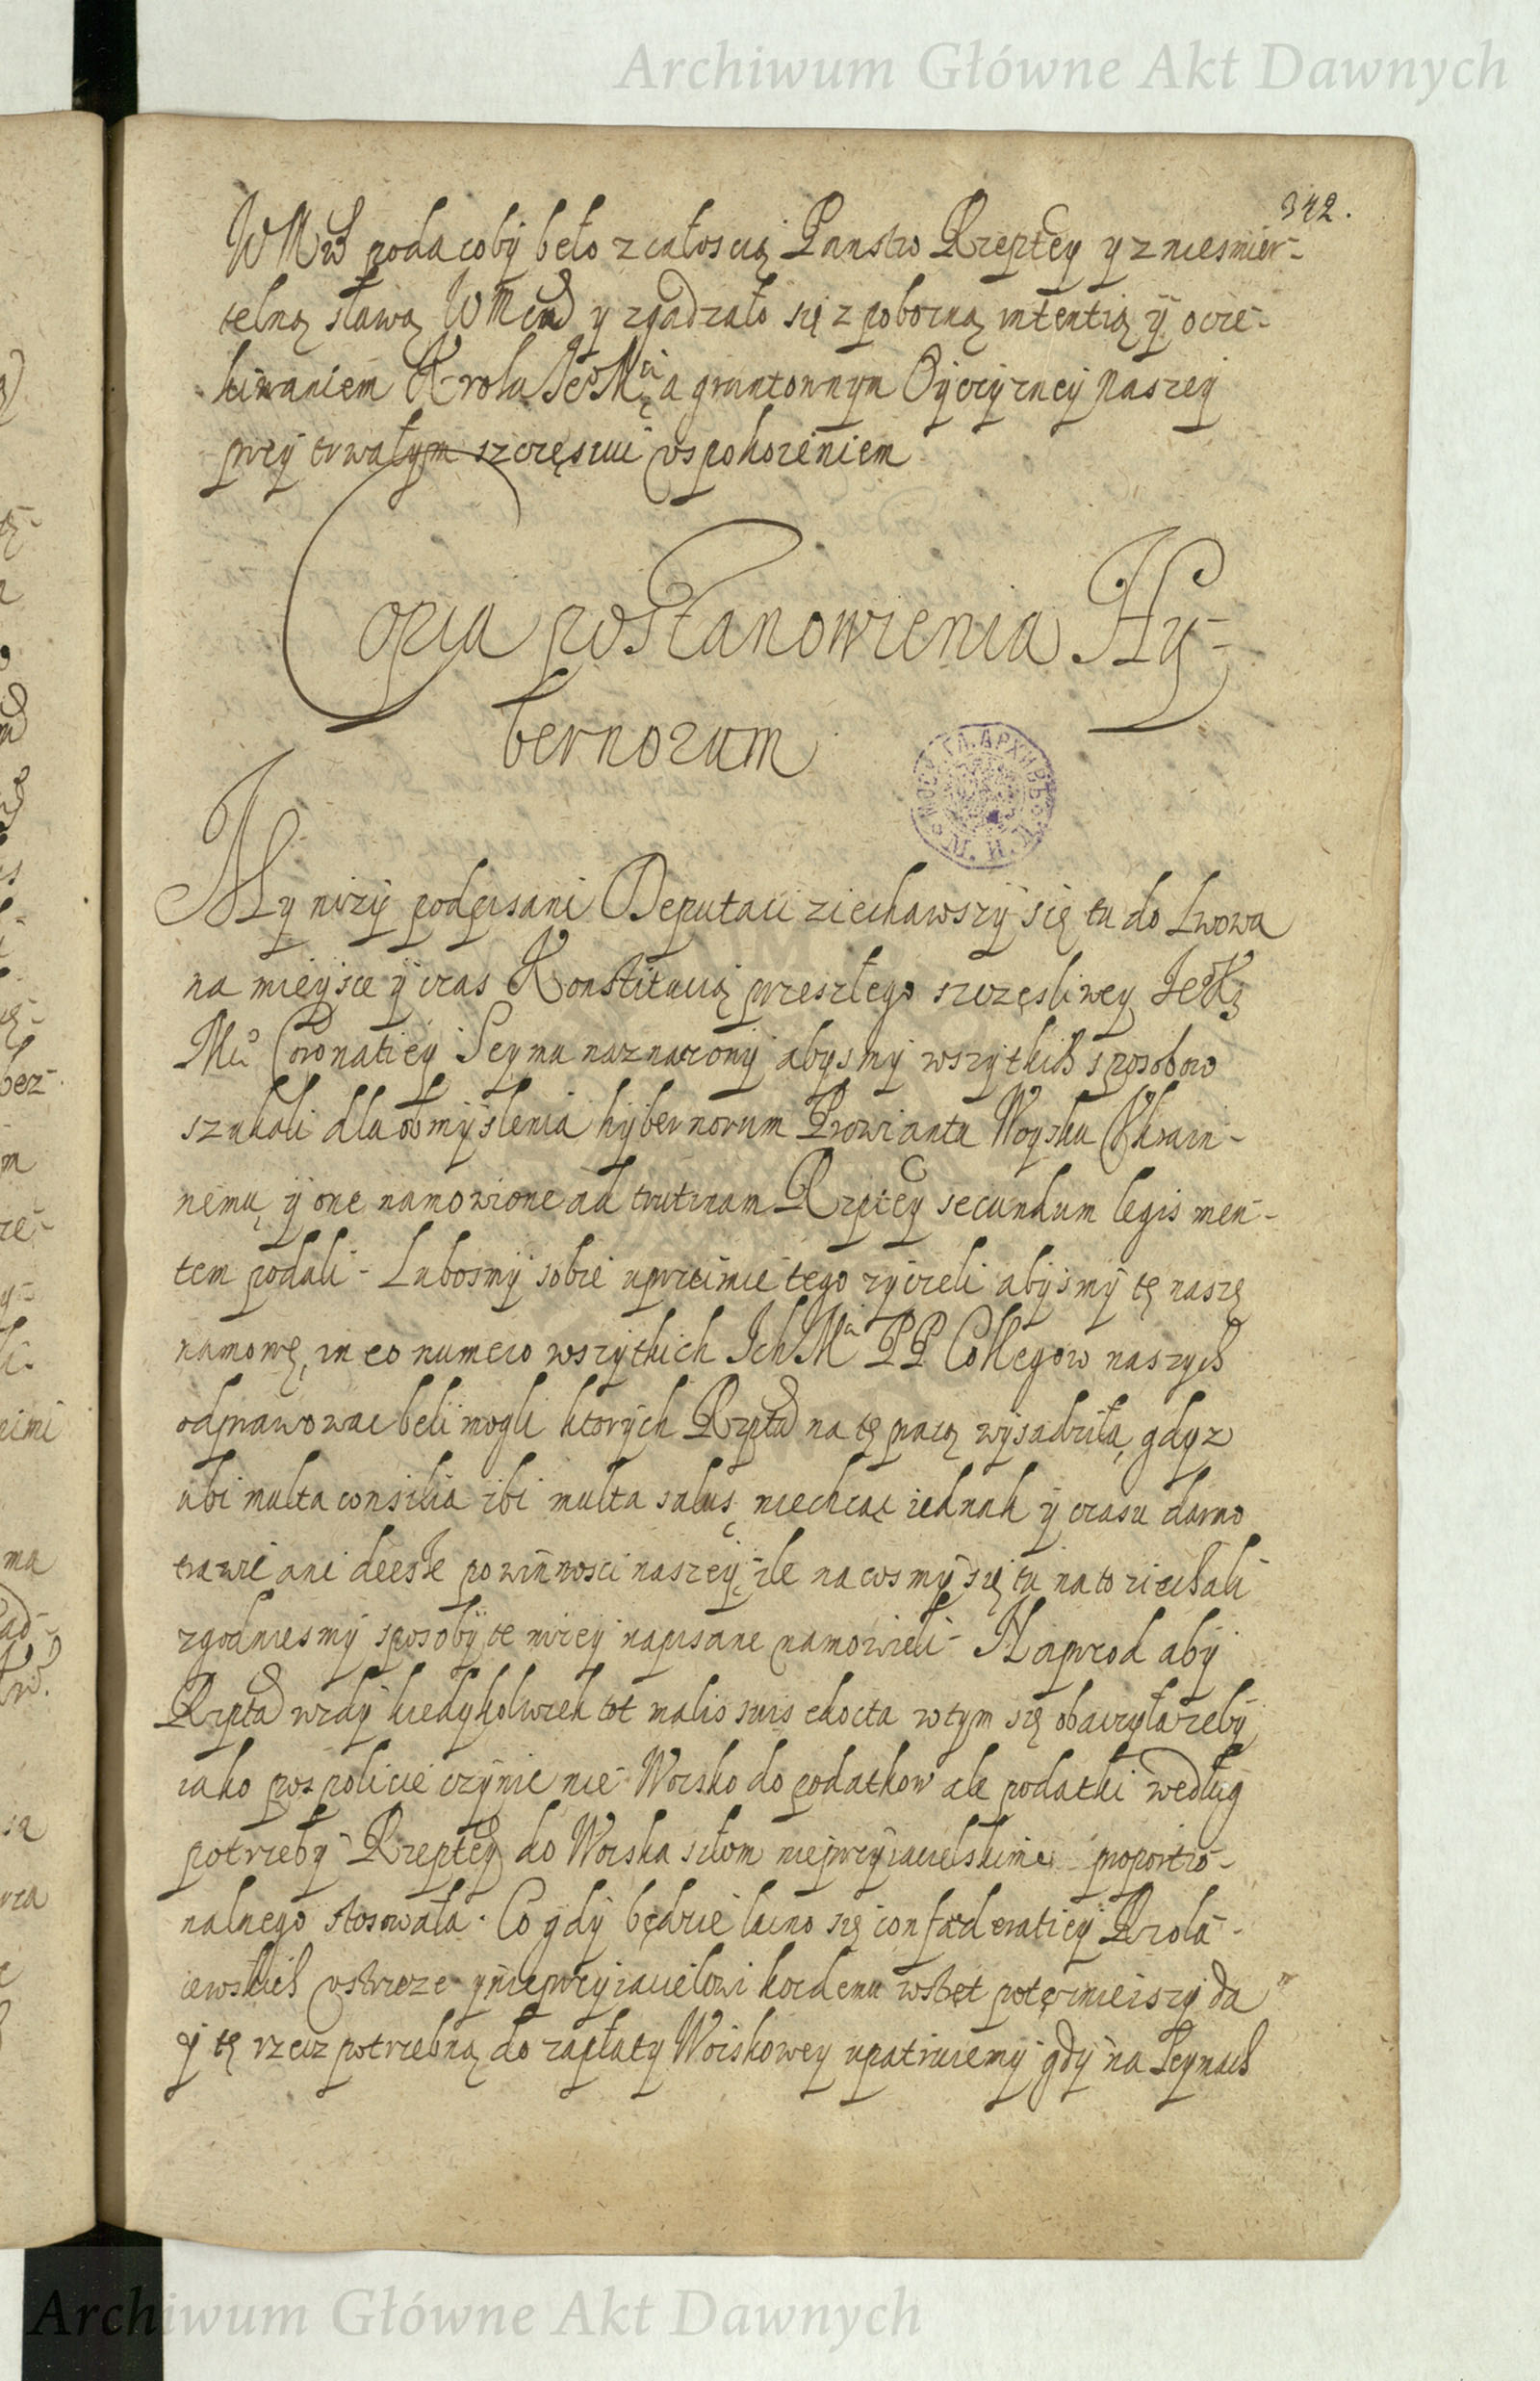 Archiwum Główne Akt Dawnych
342.
WMci poda coby beło z całoscią Panstw Rzeptey y z niesmier-
telną sławą WMciow y zgadzało się z pobozną intentią y ocze-
kiwaniem Krola JeoMci a gruntownym Oyczyzney naszey
przy trwałym szczęsciu uspokoieniem
Copia postanowienia Hy-
bernorum
My nizy podpisani Deputaci ziechawszy się tu do Lwowa
na mieysce y czas Konstitucią przeszłego szczęsliwey JeoK
Mci Coronatiey Seymu naznaczony abysmy wszytkich sposobow
szukali dla obmyslenia hybernorum Prowiantu Woysku Ukrain-
nemu y one namowione ad trutinam Rzptey secundum legis men-
tem podali - Lubosmy sobie uprzeimie tego zyczeli abysmy tę naszę
namowę in eo numero wszytkich Ich Mci PP Collegow naszych
odprawowac beli mogli ktorych Rzpta na tę pracą wysadziła, gdyz
ubi multa consilia ibi multa salus niechcąc iednak y czasu darmo
trawić ani deesse powinnosci naszey, ile nacosmy się tu na to ziechali
zgodniesmy sposoby te nizey napisane namowieli - Naprzod aby
Rzpta wzdy kiedykolwiek tot malis suis edocta w tym się obaczyła zeby
iako pospolicie czynic nie Woisko do podatkow ale podatki według
potrzeby Rzeptey do Woiska siłom nieprzyiacielskim proportio-
nalnego stosowała. Co gdy będzie lacno się confaederatiey Krola-
iewskich ustrzeze y nieprzyiacielowi kozdemu wstręt potęznieiszy da
y tę rzecz potrzebną do zapłaty Woiskowey upatruiemy gdy na Seymach
Archiwum Główne Akt Dawnych